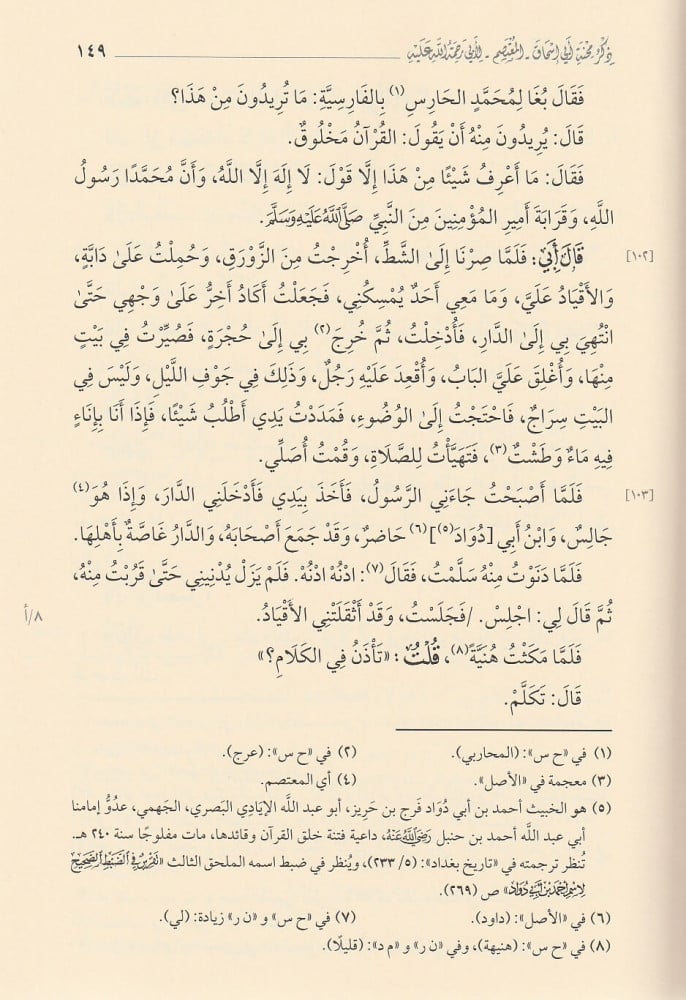 ذِكْرُ مِحْنَةِ أَبِي إِسْحَاقَ - المُعْتَصِمِ - لِأَبِي رَحْمَةُ اللَّهِ عَلَيْهِ ١٤٩
فَقَالَ بُغَا لِمُحَمَّدٍ الحَارِسِ(١) بِالفَارِسِيَّةِ: مَا تُرِيدُونَ مِنْ هَذَا؟
قَالَ: يُرِيدُونَ مِنْهُ أَنْ يَقُولَ: القُرْآنُ مَخْلُوقٌ.
فَقَالَ: مَا أَعْرِفُ شَيْئًا مِنْ هَذَا إِلَّا قَوْلَ: لَا إِلَهَ إِلَّا اللَّهُ، وَأَنَّ مُحَمَّدًا رَسُولُ
اللَّهِ، وَقَرَابَةَ أَمِيرِ المُؤْمِنِينَ مِنَ النَّبِيِّ صَلَّى اللَّهُ عَلَيْهِ وَسَلَّمَ.
[١٠٢] قَالَ أَبِي: فَلَمَّا صِرْنَا إِلَىٰ الشَّطِّ، أُخْرِجْتُ مِنَ الزَّوْرَقِ، وَحُمِلْتُ عَلَىٰ دَابَّةٍ،
وَالأَقْيَادُ عَلَيَّ، وَمَا مَعِي أَحَدٌ يُمْسِكُنِي، فَجَعَلْتُ أَكَادُ أَخِرُّ عَلَىٰ وَجْهِي حَتَّىٰ
انْتُهِيَ بِي إِلَىٰ الدَّارِ، فَأُدْخِلْتُ، ثُمَّ خُرِجَ(٢) بِي إِلَىٰ حُجْرَةٍ، فَصُيِّرْتُ فِي بَيْتٍ
مِنْهَا، وَأُغْلِقَ عَلَيَّ البَابُ، وَأُقْعِدَ عَلَيْهِ رَجُلٌ، وَذَلِكَ فِي جَوْفِ اللَّيْلِ، وَلَيْسَ فِي
البَيْتِ سِرَاجٌ، فَاحْتَجْتُ إِلَىٰ الوُضُوءِ، فَمَدَدْتُ يَدِي أَطْلُبُ شَيْئًا، فَإِذَا أَنَا بِإِنَاءٍ
فِيهِ مَاءٌ وَطَشْتٌ(٣)، فَتَهَيَّأْتُ لِلصَّلَاةِ، وَقُمْتُ أُصَلِّي.
[١٠٣] فَلَمَّا أَصْبَحْتُ جَاءَنِي الرَّسُولُ، فَأَخَذَ بِيَدِي فَأَدْخَلَنِي الدَّارَ، وَإِذَا هُوَ(٤)
جَالِسٌ، وَابْنُ أَبِي [دُوَادَ(٥)](٦) حَاضِرٌ، وَقَدْ جَمَعَ أَصْحَابَهُ، وَالدَّارُ غَاصَّةٌ بِأَهْلِهَا.
فَلَمَّا دَنَوْتُ مِنْهُ سَلَّمْتُ، فَقَالَ(٧): ادْنُهْ ادْنُهْ. فَلَمْ يَزَلْ يُدْنِينِي حَتَّىٰ قَرُبْتُ مِنْهُ،
ثُمَّ قَالَ لِي: اجْلِسْ. /فَجَلَسْتُ، وَقَدْ أَثْقَلَتْنِي الأَقْيَادُ. ٨/أ
فَلَمَّا مَكَثْتُ هُنَيَّةً(٨)، قُلْتُ: «تَأْذَنُ فِي الكَلَامِ؟»
قَالَ: تَكَلَّمْ.
(١) في «ح س»: (المحاربي). (٢) في «ح س»: (عرج).
(٣) معجمة في «الأصل». (٤) أي المعتصم.
(٥) هو الخبيث أحمد بن أبي دُوَاد فَرج بن حَريز، أبو عبد اللَّه الإيَادي البَصري، الجَهمي، عدُوُّ إمامنا
أبي عبد اللَّه أحمد بن حنبل رَضِيَ اللَّهُ عَنْهُ، داعية فتنة خلق القرآن وقائدها، مات مفلوجًا سنة ٢٤٠ هـ.
تُنظر ترجمته في «تاريخ بغداد»: (٥/ ٢٣٣)، ويُنظر في ضبط اسمه الملحق الثالث «تَقْرِيرٌ في الضَّبْطِ الصَّحِيحِ
لِاسْمِ أَحْمَدَ بْنِ أَبِي دُوَادَ» ص (٢٦٩).
(٦) في «الأصل»: (داود). (٧) في «ح س» و «ن ر» زيادة: (لي).
(٨) في «ح س»: (هنيهة)، وفي «ن ر» و «م د»: (قليلًا).